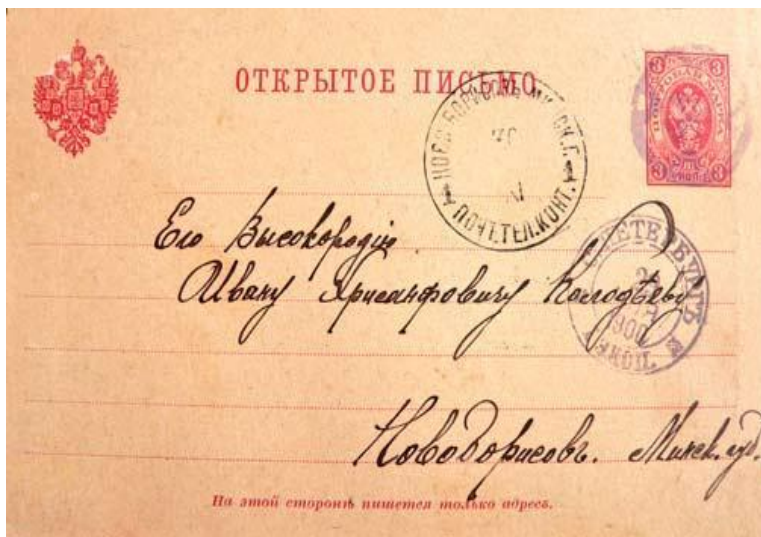 ОТКРЫТОЕ ПИСЬМО
3 3
ПОЧТОВАЯ МАРКА
3 3
НОВО-БОРИСОВЪ МИНСК.Г.
1 1
ПОЧТ.ТЕЛ.КОНТ.
С.ПЕТЕРБУРГЪ
1900
Его Высокородію
Ивану Хрисанфовичу Колодѣеву
Новоборисовъ. Минск. губ.
На этой сторонѣ пишется только адресъ.